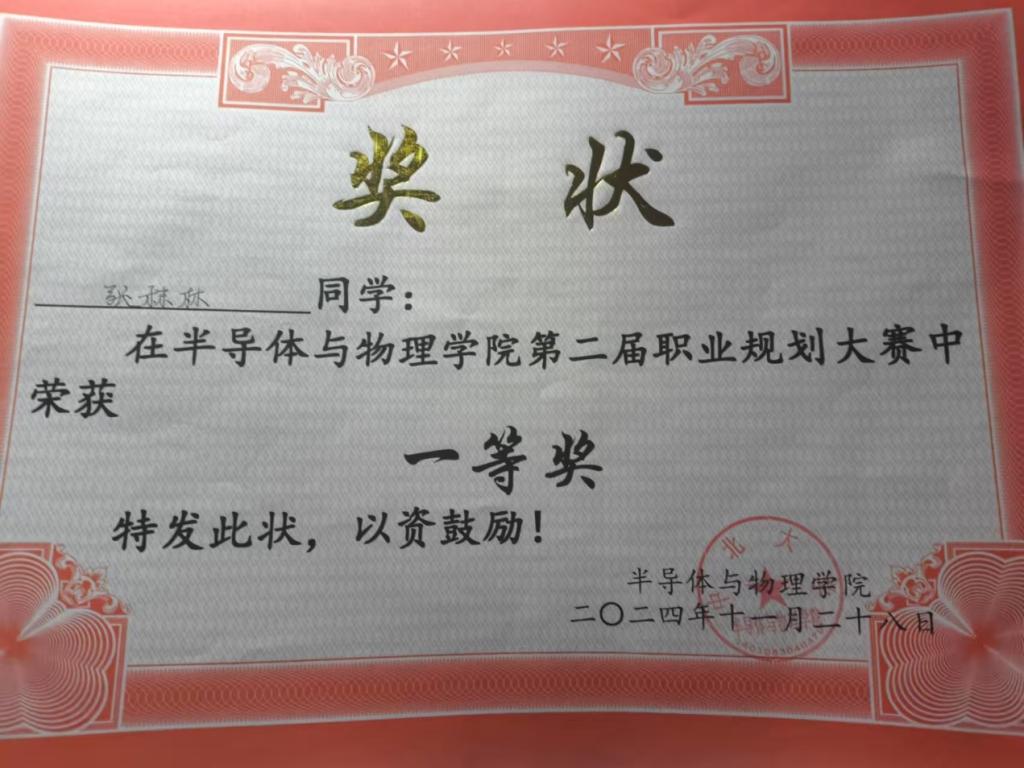 奖状
张林林 同学：
在半导体与物理学院第二届职业规划大赛中
荣获
一等奖
特发此状，以资鼓励！
半导体与物理学院
二〇二四年十一月二十八日
中北大学
半导体与物理学院